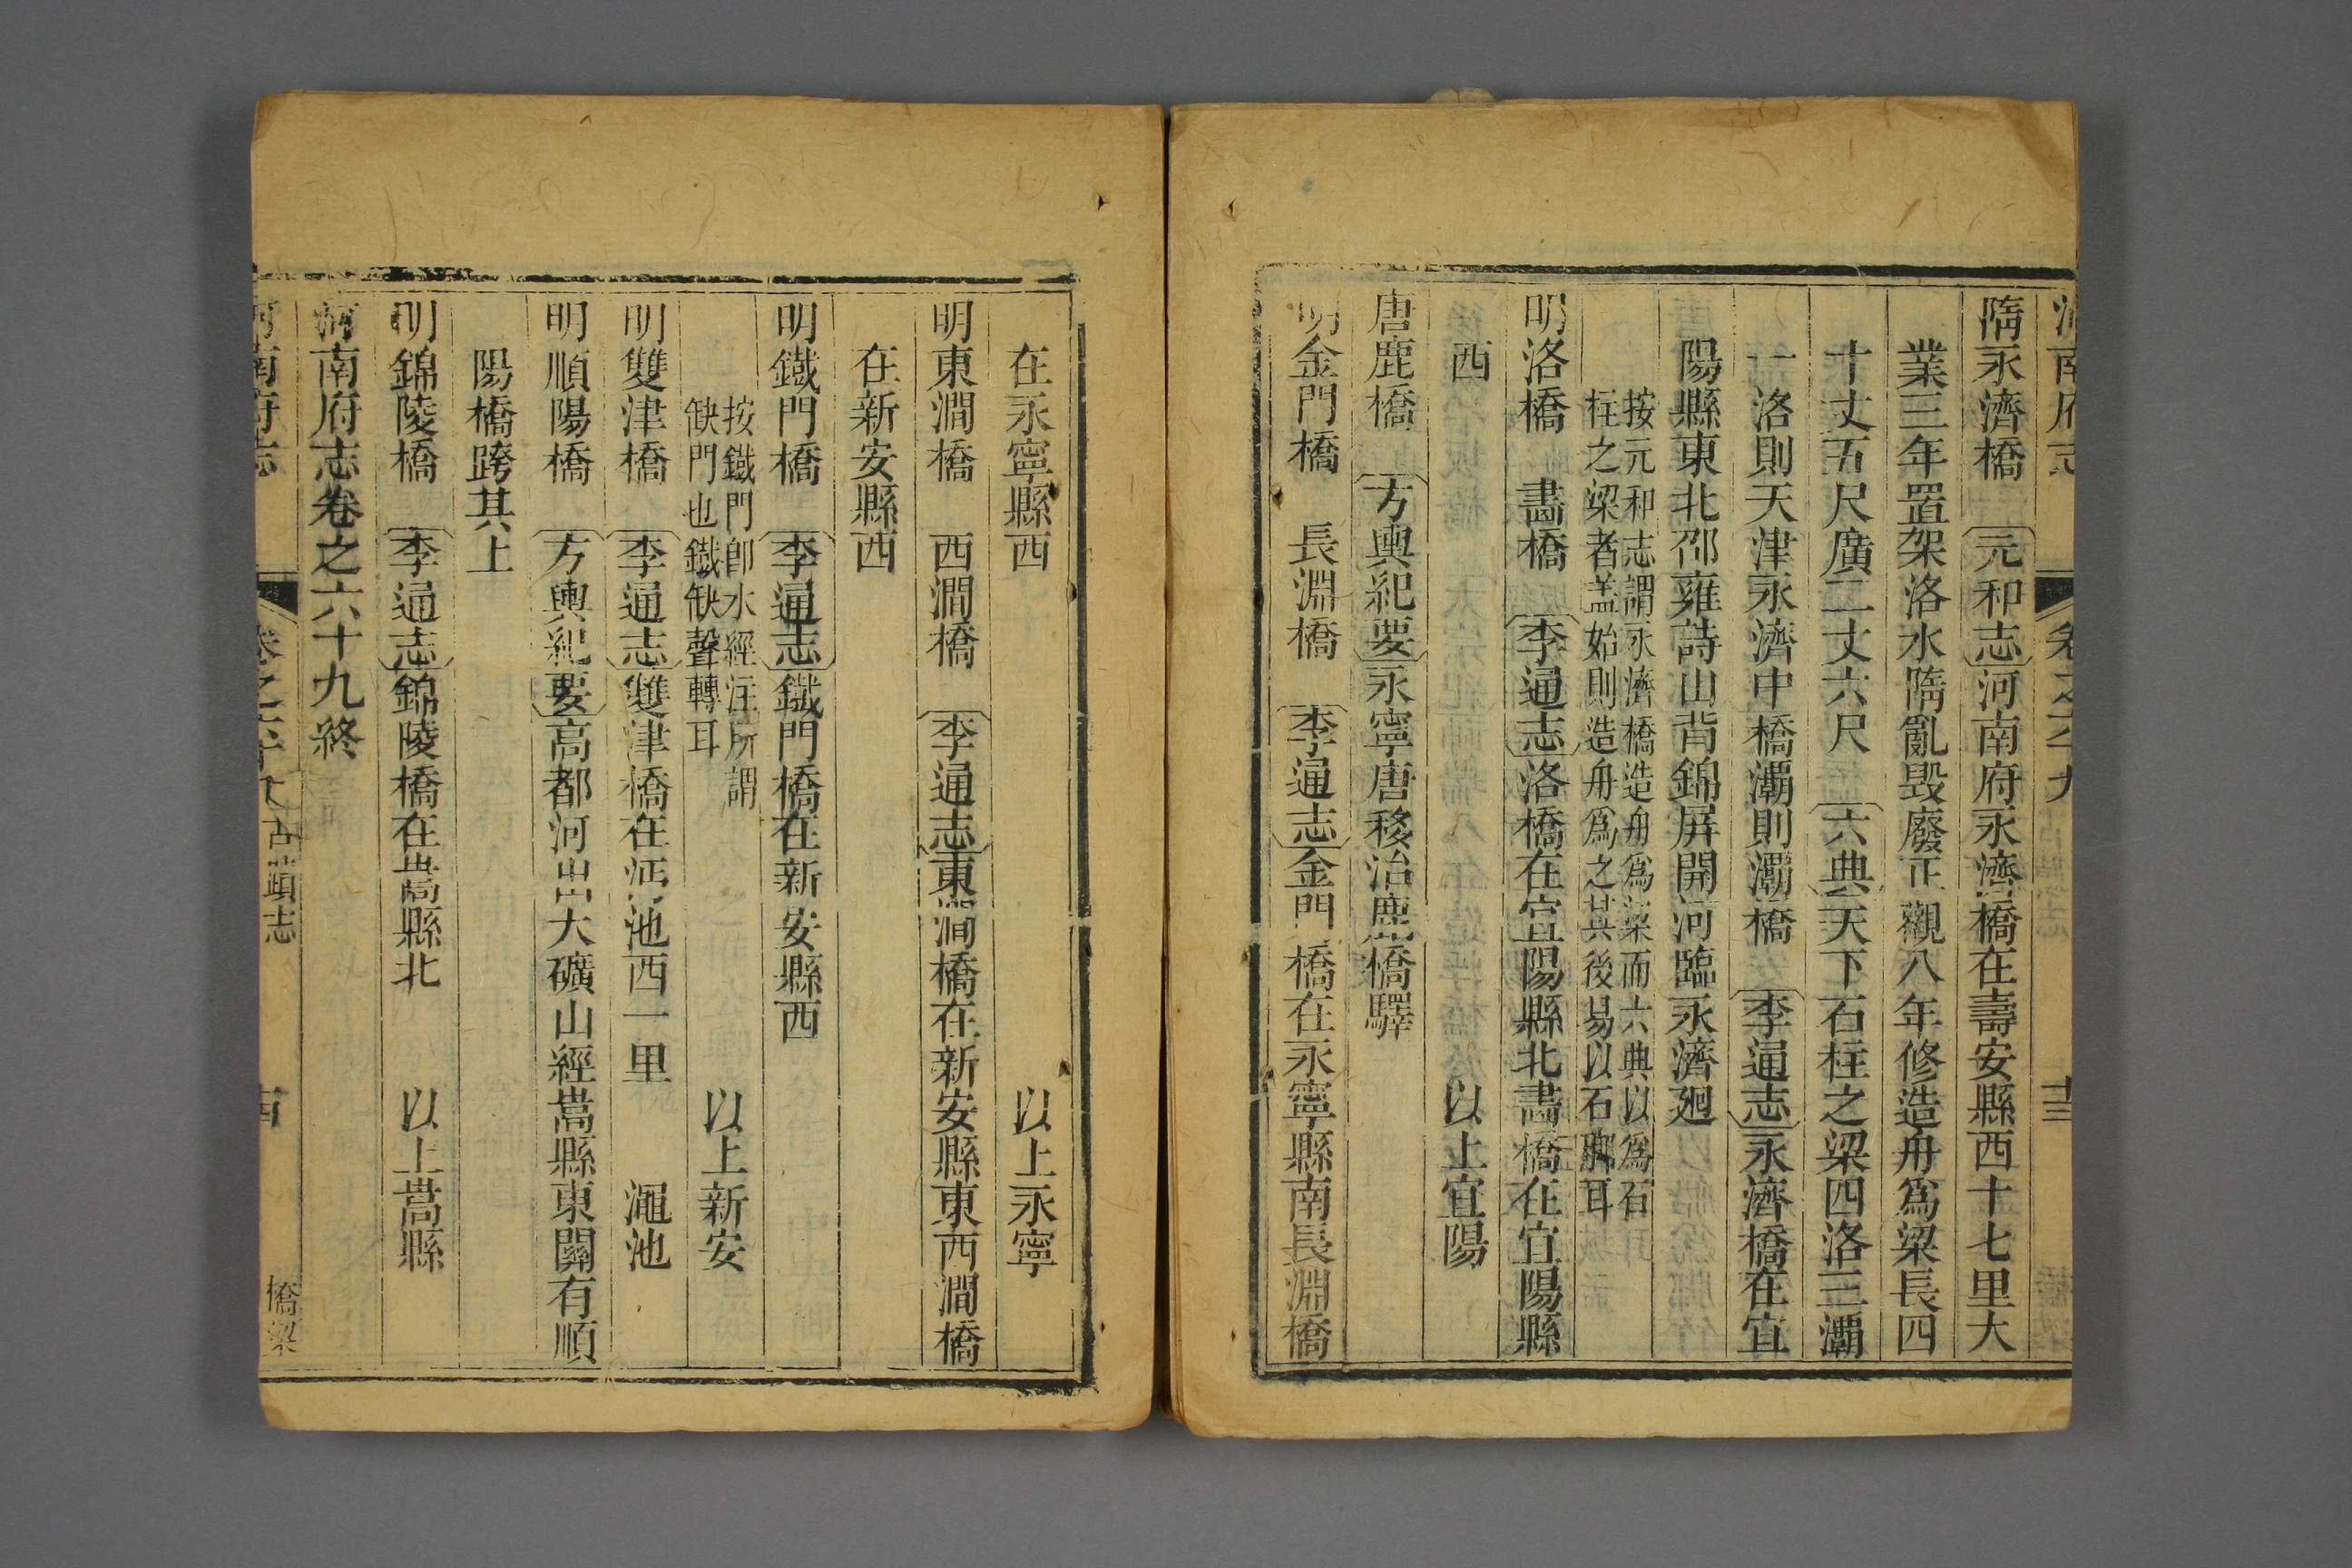 河南府志 卷之六十九 十三
隋永濟橋 元和志河南府永濟橋在壽安縣西十七里大
業三年置架洛水隋亂毁廢正觀八年修造舟爲梁長四
十丈五尺廣二丈六尺 六典天下石柱之梁四洛三灞
一洛則天津永濟中橋灞則灞橋 李通志永濟橋在宜
陽縣東北邵雍詩山背錦屏開河臨永濟廻
按元和志謂永濟橋造舟爲梁而六典以爲石
柱之梁者盖始則造舟爲之其後易以石脚耳
明洛橋 畵橋 李通志洛橋在宜陽縣北畵橋在宜陽縣
西 以上宜陽
唐鹿橋 方輿紀要永寧唐移治鹿橋驛
明金門橋 長淵橋 李通志金門橋在永寧縣南長淵橋
在永寧縣西 以上永寧
明東澗橋 西澗橋 李通志東澗橋在新安縣東西澗橋
在新安縣西
明鐵門橋 李通志鐵門橋在新安縣西
按鐵門卽水經注所謂
缺門也鐵缺聲轉耳 以上新安
明雙津橋 李通志雙津橋在澠池西一里 澠池
明順陽橋 方輿紀要高都河出大礦山經嵩縣東關有順
陽橋跨其上
明錦陵橋 李通志錦陵橋在嵩縣北 以上嵩縣
河南府志卷之六十九終
河南府志 卷之六十九 古蹟志 橋梁